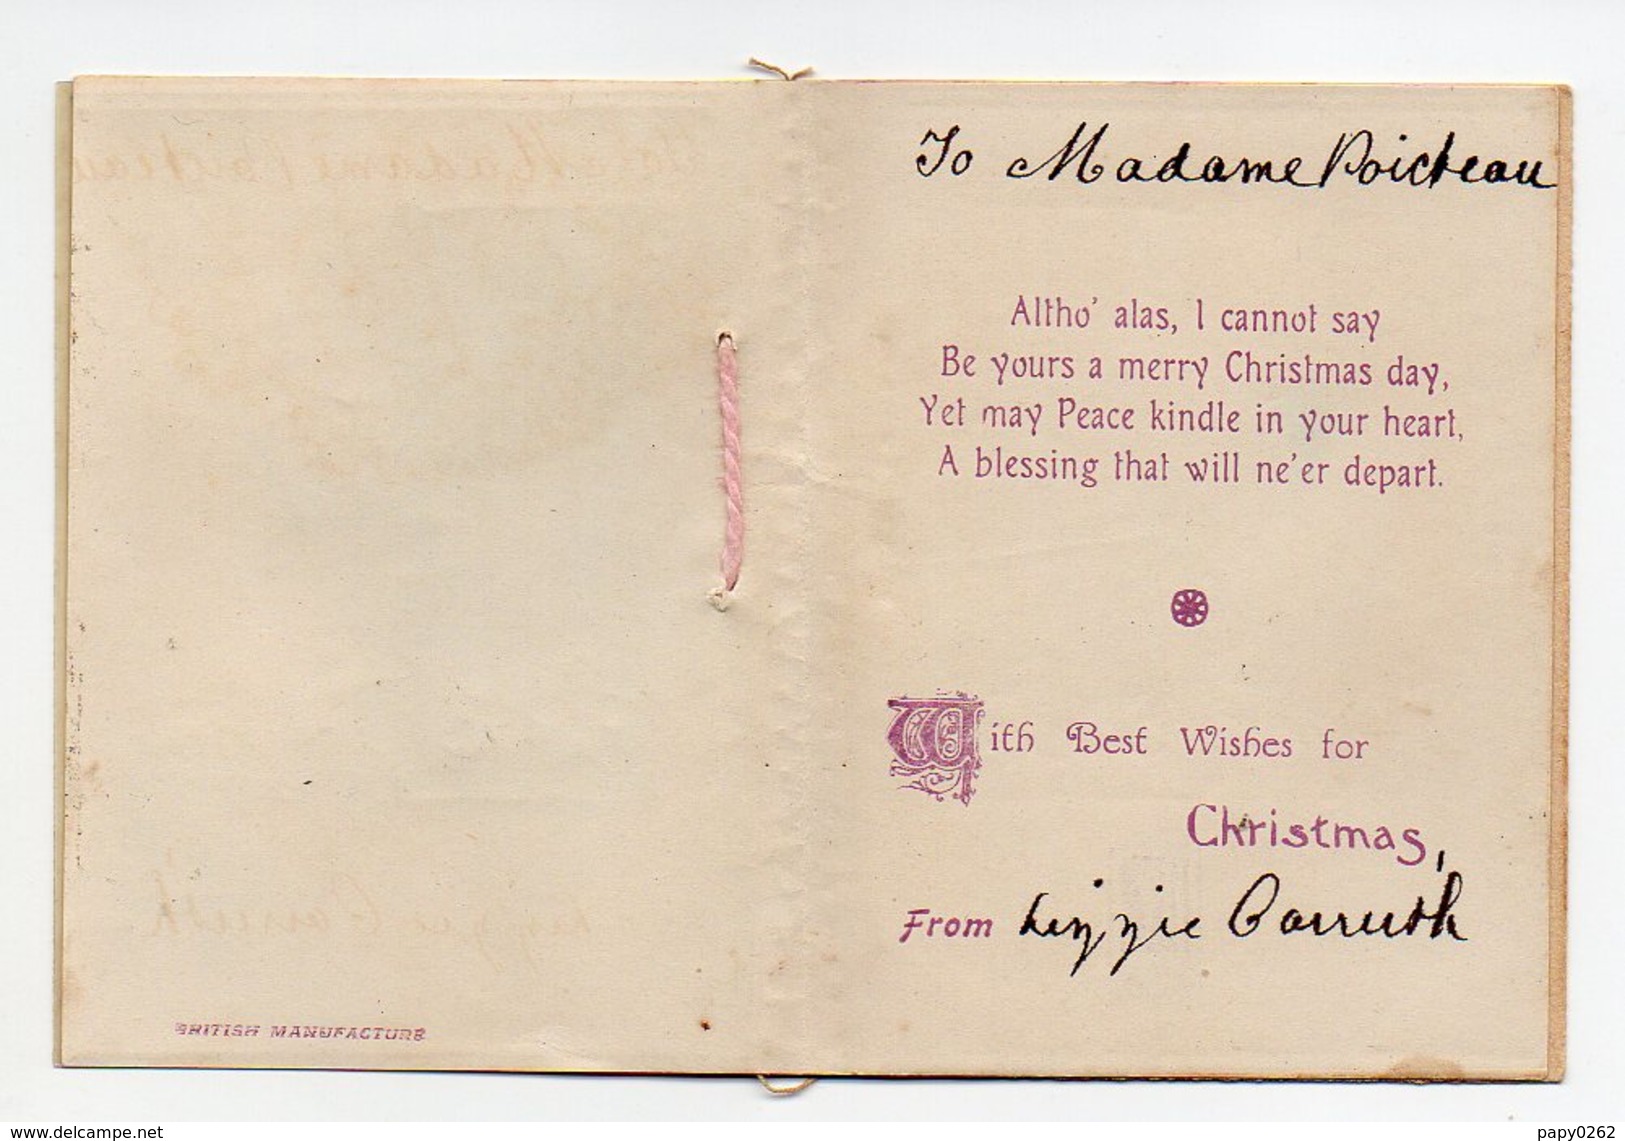 To Madame Poicteau
Altho' alas, I cannot say
Be yours a merry Christmas day,
Yet may Peace kindle in your heart,
A blessing that will ne'er depart.
With Best Wishes for
Christmas,
From Lizzie Carruth
BRITISH MANUFACTURE
www.delcampe.net
papy0262